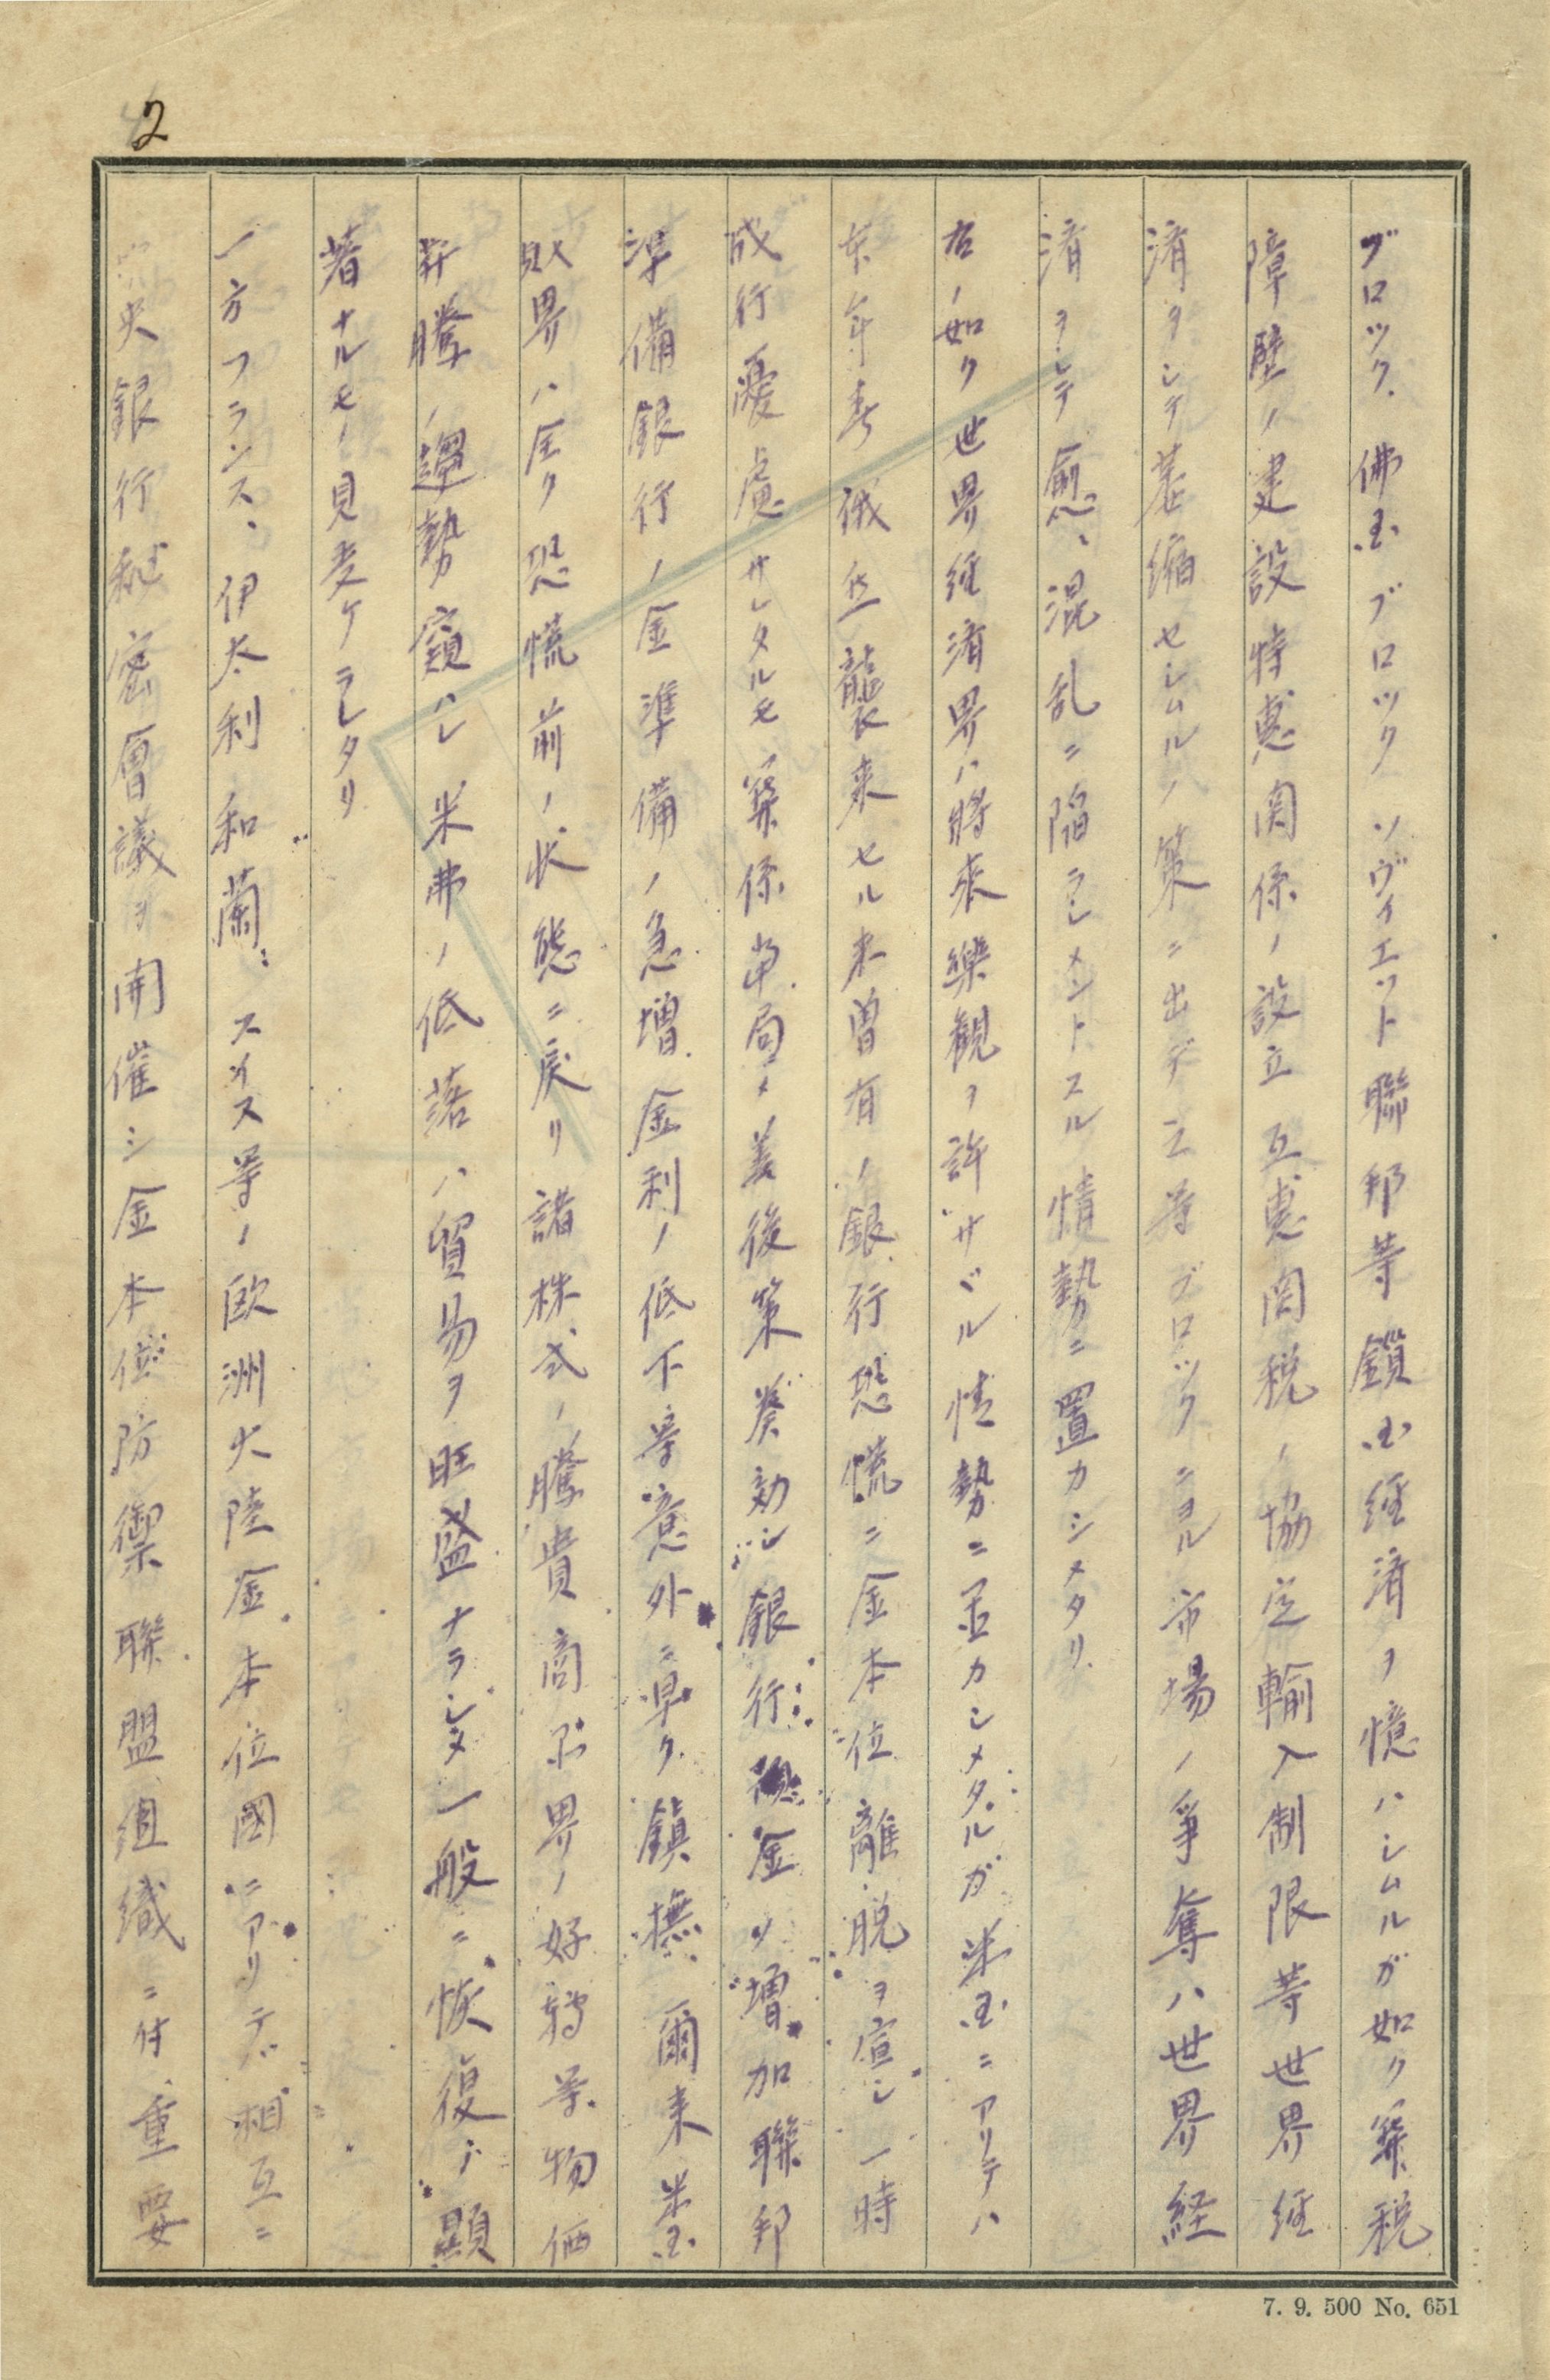 2
ブロック、佛国ブロック ソヴィエット聯邦等鎖国経済ヲ憶ハシムルガ如ク関税
障壁ノ建設特恵関係ノ設立互恵関税ノ協定輸入制限等世界経
済ヲシテ萎縮セシムルノ策ニ出デ之等ブロックニヨル市場ノ争奪ハ世界経
済ヲシテ愈、混乱ニ陥ラシメントスル情勢ニ置カシメタリ
右ノ如ク世界経済界ハ將来樂観ヲ許サザル情勢ニ置カシメタルガ米国ニアリテハ
本年春俄然襲来セル未曽有ノ銀行恐慌ニ金本位離脱ヲ宣シ一時
成行憂慮サレタルモ関係当局ノ善後策奏効シ銀行預金ノ増加聯邦
準備銀行ノ金準備ノ急増金利ノ低下等意外ニ早ク鎮撫爾来米国
財界ハ全ク恐慌前ノ状態ニ戻リ諸株式ノ騰貴商品界ノ好轉等物価
昻騰ノ趨勢窺ハレ米弗ノ低落ハ貿易ヲ旺盛ナラシメ一般ニ恢復ノ顕
著ナルモノ見受ケラレタリ
一方フランス、伊太利和蘭、スイス等ノ欧洲大陸金本位國ニアリテハ相互ニ
央銀行秘密會議ヲ開催シ金本位防禦聯盟組織ニ付重要
7. 9. 500 No. 651